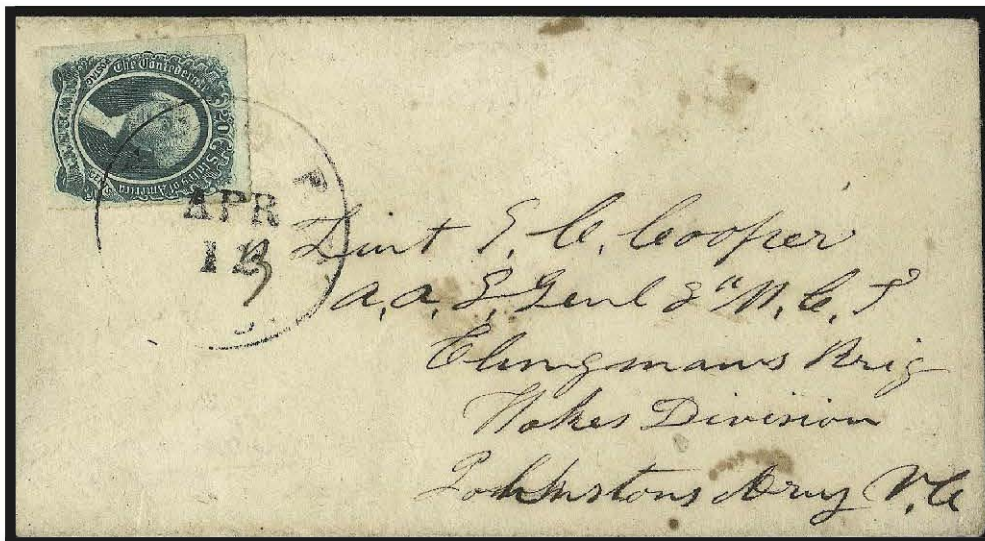 The Confederate States of America
20
APR
12
Lieut E. C. Cooper
A. A. I. Genl 8" N. C. T
Clingmans Brig
Hokes Division
Johnstons Army N.C